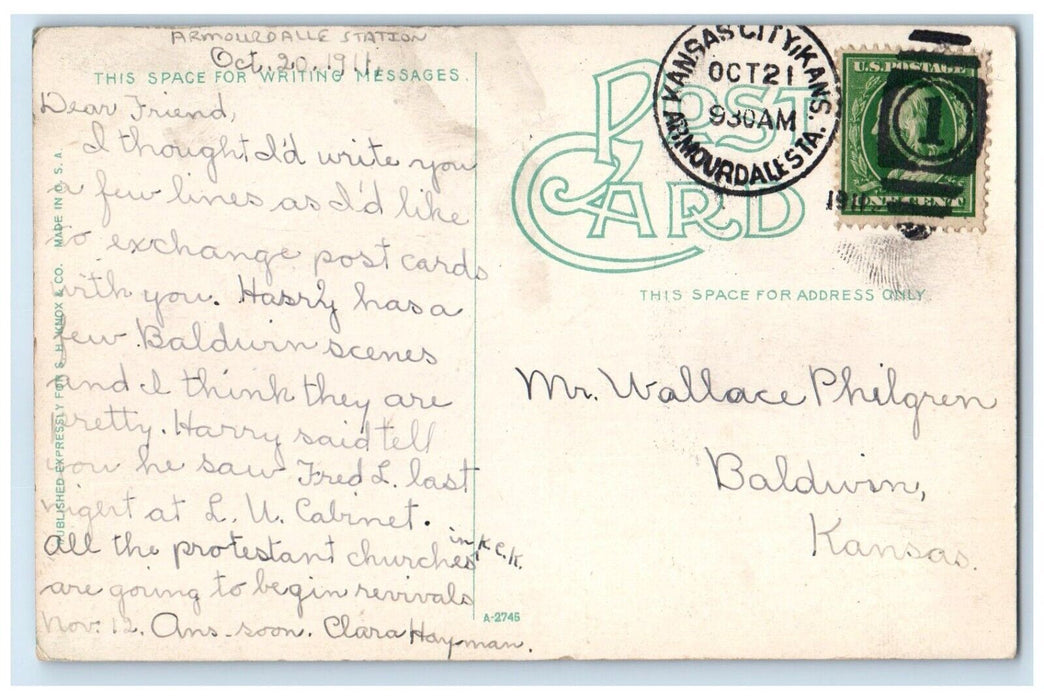 ARMOURDALLE STATION
Oct. 20, 1911,
THIS SPACE FOR WRITING MESSAGES.
Dear Friend,
I thought I'd write you
a few lines as I'd like
to exchange post cards
with you. Harry has a
few Baldwin scenes
and I think they are
pretty. Harry said tell
you he saw Fred L. last
night at L. U. Cabinet.
All the protestant churches in K.C.K.
are going to begin revivals
Nov. 12. Ans. soon. Clara Hayman.
PUBLISHED EXPRESSLY FOR S. H. KNOX & CO. MADE IN U. S. A.
A-2745
POST CARD
KANSAS CITY, KANS.
OCT 21
930AM
ARMOURDALE STA.
U.S. POSTAGE
1
THIS SPACE FOR ADDRESS ONLY.
Mr. Wallace Philgren
Baldwin,
Kansas.